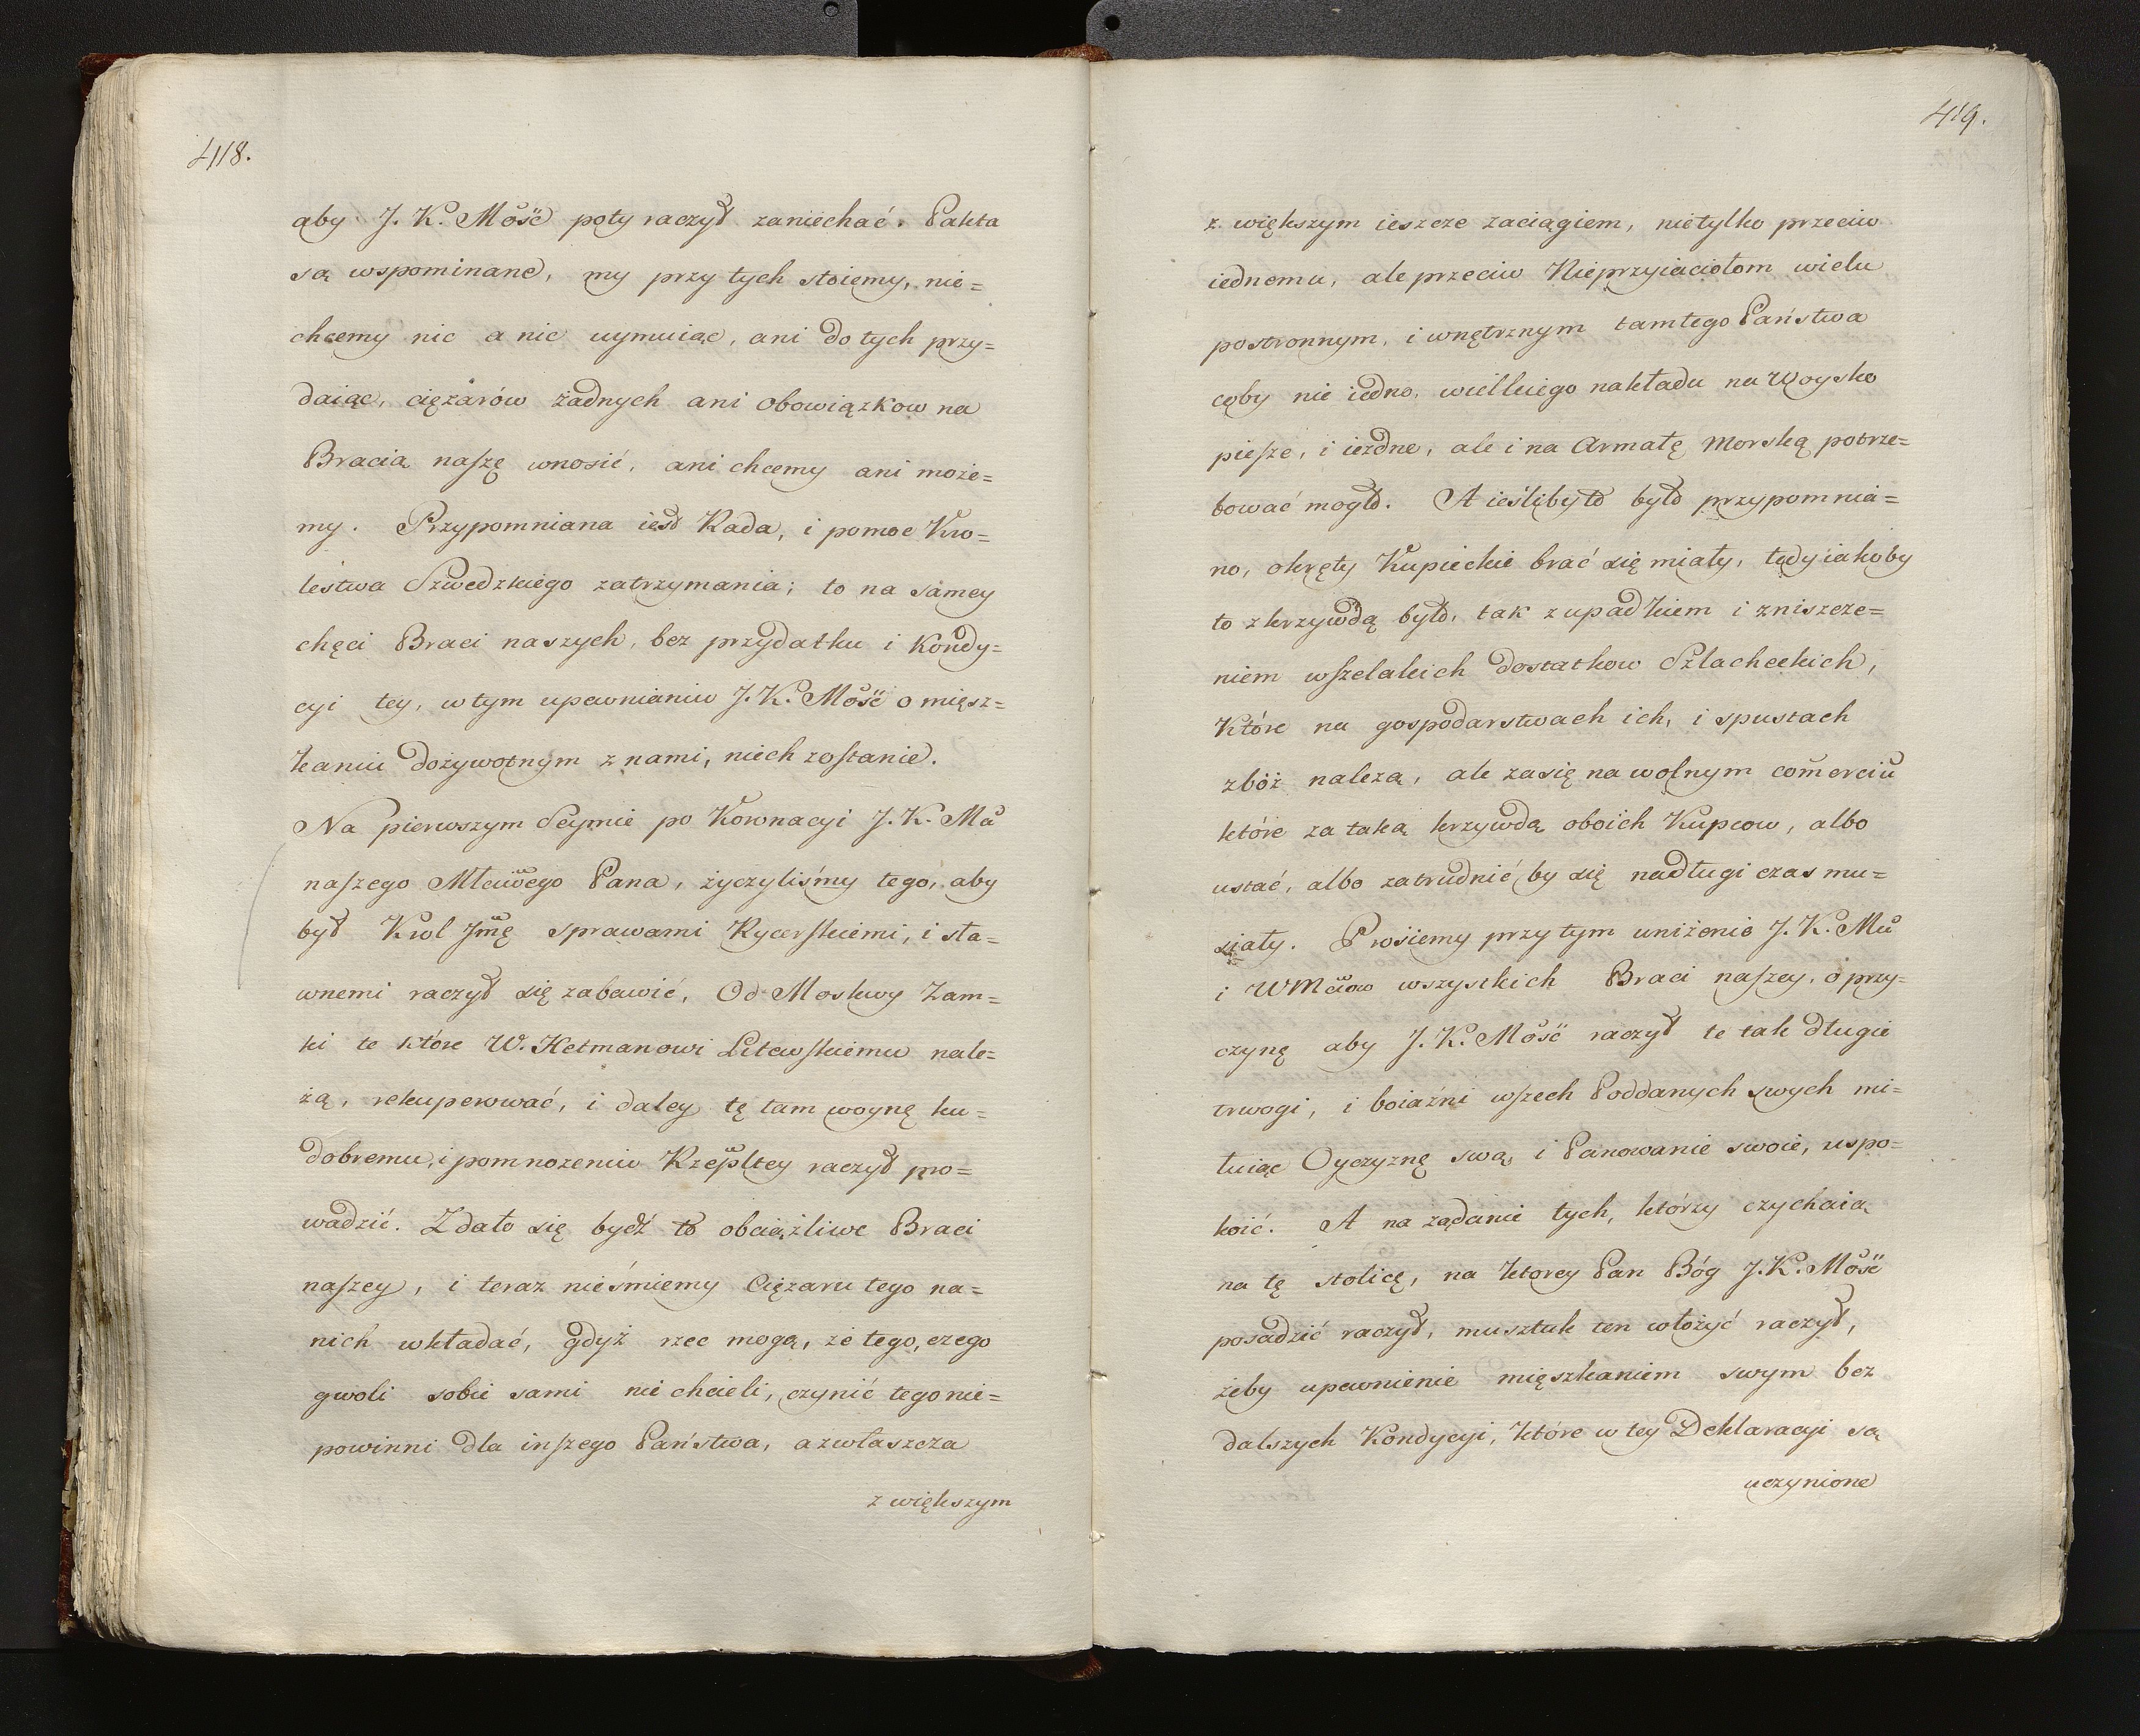 418.
aby J. K. Mość poty raczył zaniechać. Pakta
są wspominane, my przy tych stoiemy, nie=
chcemy nic a nic uymuiąc, ani do tych przy=
daiąc, ciężarów żadnych ani obowiązkow na
Bracią naszę wnosić, ani chcemy ani może=
my. Przypomniana iest Rada, i pomoc Kro=
lestwa Szwedzkiego zatrzymania; to na samey
chęci Braci naszych, bez przydatku i Kondy=
cyi tey, w tym upewnianiu J. K. Mość o mięsz=
kaniu dożywotnym z nami, niech zostanie.
Na pierwszym Seymie po Koronacyi J. K. Mci
naszego Młciwego Pana, życzyliśmy tego, aby
był Krol Jmę sprawami Rycerskiemi, i sła=
wnemi raczył się zabawić, Od Moskwy Zam=
ki te które W. Hetmanowi Litewskiemu nale=
żą, rekuperować, i daley tę tam woynę ku=
dobremu, i pomnożeniu Rzepltey raczył pro=
wadzić. Zdało się bydź to obciążliwe Braci
naszey, i teraz nieśmiemy Ciężaru tego na=
nich wkładać, gdyż rzec mogą, że tego, czego
gwoli sobie sami nie chcieli, czynić tego nie=
powinni dla inszego Państwa, a zwłaszcza
z większym
419.
z większym ieszcze zaciągiem, nietylko przeciw
iednemu, ale przeciw Nieprzyiaciołom wielu
postronnym, i wnętrznym tamtego Państwa
coby nie iedno, wielkiego nakładu na Woysko
piesze, i iezdne, ale i na Armatę Morską potrze=
bować mogło. A ieśliby to było przypomnia=
no, okręty Kupieckie brać się miały, tedy iakoby
to z krzywdą było, tak z upadkiem i zniszcze=
niem wszelakich dostatkow Szlacheckich,
Które na gospodarstwach ich, i spustach
zbóż należą, ale zasię na wolnym comerciu
które za taką krzywdą oboich Kupcow, albo
ustać, albo zatrudnić by się na długi czas mu=
siały. Prosiemy przy tym uniżenie J. K. Mci
i WMciow wszystkich Braci naszey, o przy=
czynę aby J. K. Mość raczył te tak długie
trwogi, i boiaźni wszech Poddanych swych mi=
łuiąc Oyczyznę swą, i Panowanie swoie, uspo=
koić. A na żądanie tych, którzy czychaią
na tę stolicę, na ktorey Pan Bóg J. K. Mość
posadzić raczył, musztuk ten włożyć raczył,
żeby upewnienie mięszkaniem swym bez
dalszych Kondycyi, które w tey Deklaracyi są
uczynione